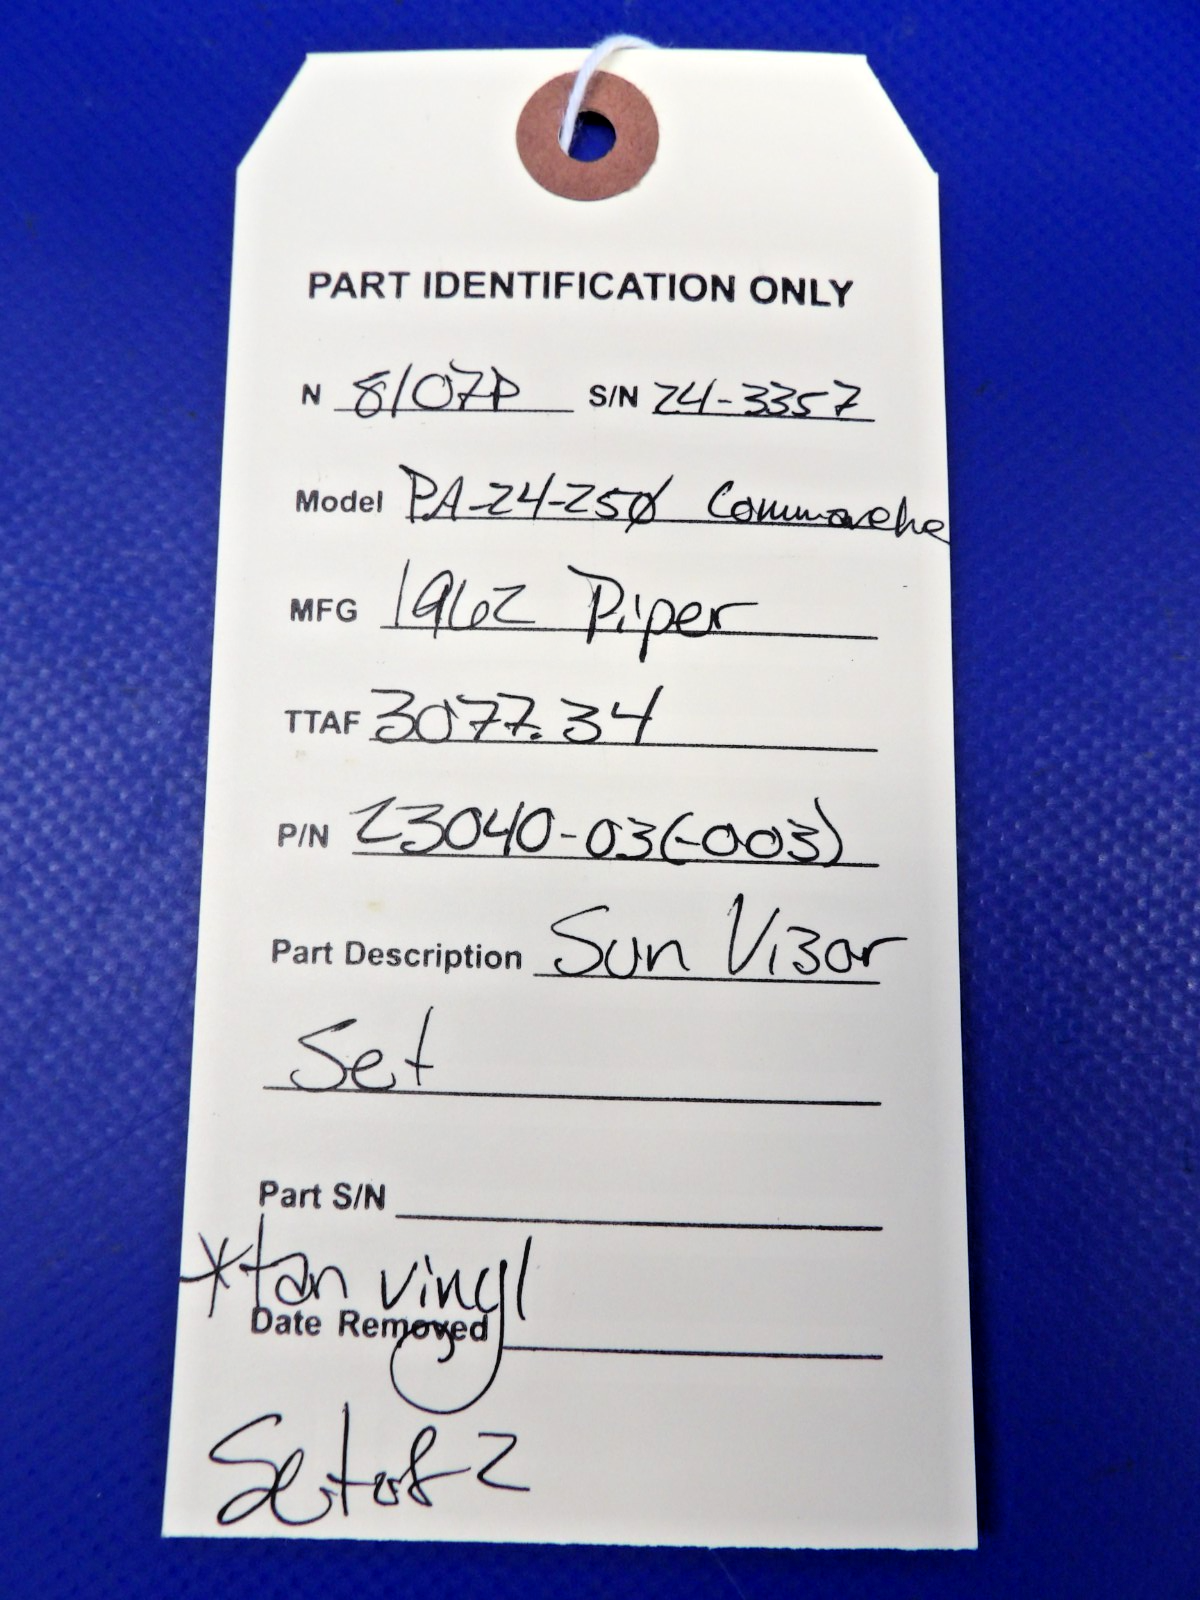 PART IDENTIFICATION ONLY
N 8107P S/N 24-3357
Model PA-24-250 Commanche
MFG 1962 Piper
TTAF 3077.34
P/N 23040-03(-003)
Part Description Sun Visor
Set
Part S/N
*tan vinyl
Date Removed
Set of 2